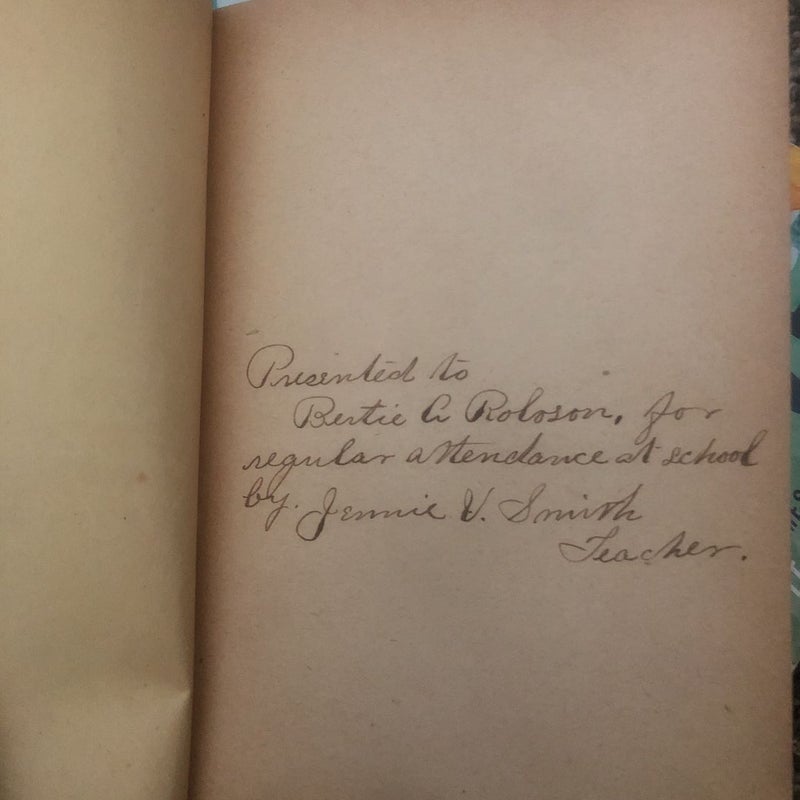 Presented to
Bertie A Roloson, for
regular attendance at school
by. Jennie V. Smith
Teacher.